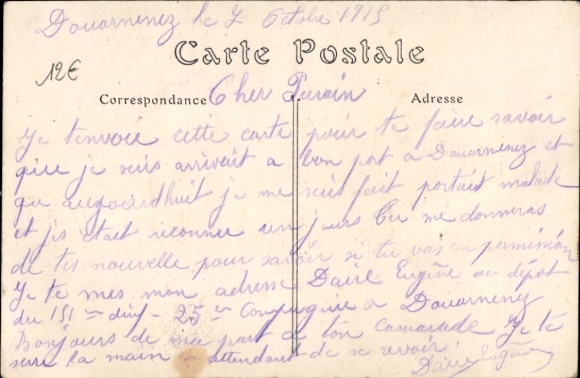 Douarnenez le 7 Octobre 1915
Carte Postale
12€
Correspondance
Cher Parain
Adresse
Je tenvoie cette carte pour te faire savoir
que je suis arrivait a bon port a Douarnenez et
qu aujourdhuit je me suis fait portait malade
et jis etait reconnue un jours tu me donneras
de tes nouvelle pour savoir si tu vas en permission
Je te mes mon adresse Daire Eugène au dépot
du 151 inf 25 Compagnie a Douarnenez
Bonjours de ma part a ton camarade Je te
sere la main en attendant de se revoir
Daire Eugène